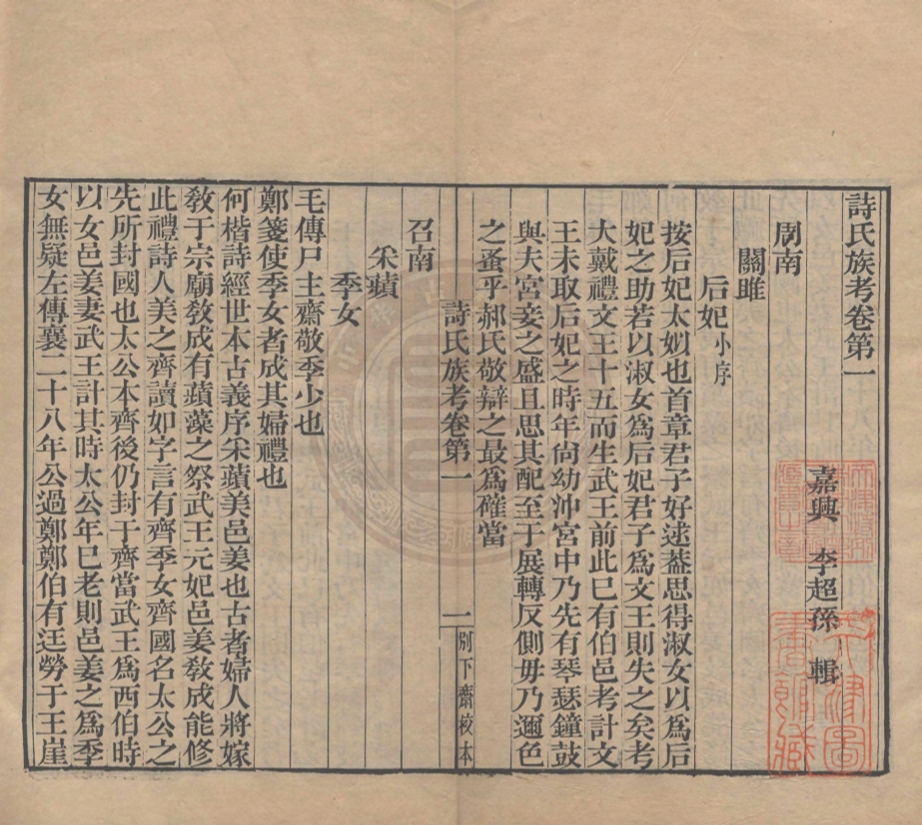 詩氏族考卷第一
嘉興　李超孫　輯
周南
關雎
后妃小序
按后妃太姒也首章君子好逑葢思得淑女以爲后
妃之助若以淑女爲后妃君子爲文王則失之矣考
大戴禮文王十五而生武王前此已有伯邑考計文
王未取后妃之時年尙幼沖宮中乃先有琴瑟鐘鼓
與夫宮妾之盛且思其配至于展轉反側毋乃邇色
之蚤乎郝氏敬辯之最爲確當
詩氏族考卷第一　一　別下齋校本
召南
采蘋
季女
毛傳尸主齋敬季少也
鄭箋使季女者成其婦禮也
何楷詩經世本古義序采蘋美邑姜也古者婦人將嫁
敎于宗廟敎成有蘋藻之祭武王元妃邑姜敎成能修
此禮詩人美之齊讀如字言有齊季女齊國名太公之
先所封國也太公本齊後仍封于齊當武王爲西伯時
以女邑姜妻武王計其時太公年已老則邑姜之爲季
女無疑左傳襄二十八年公過鄭鄭伯有迋勞于王崖